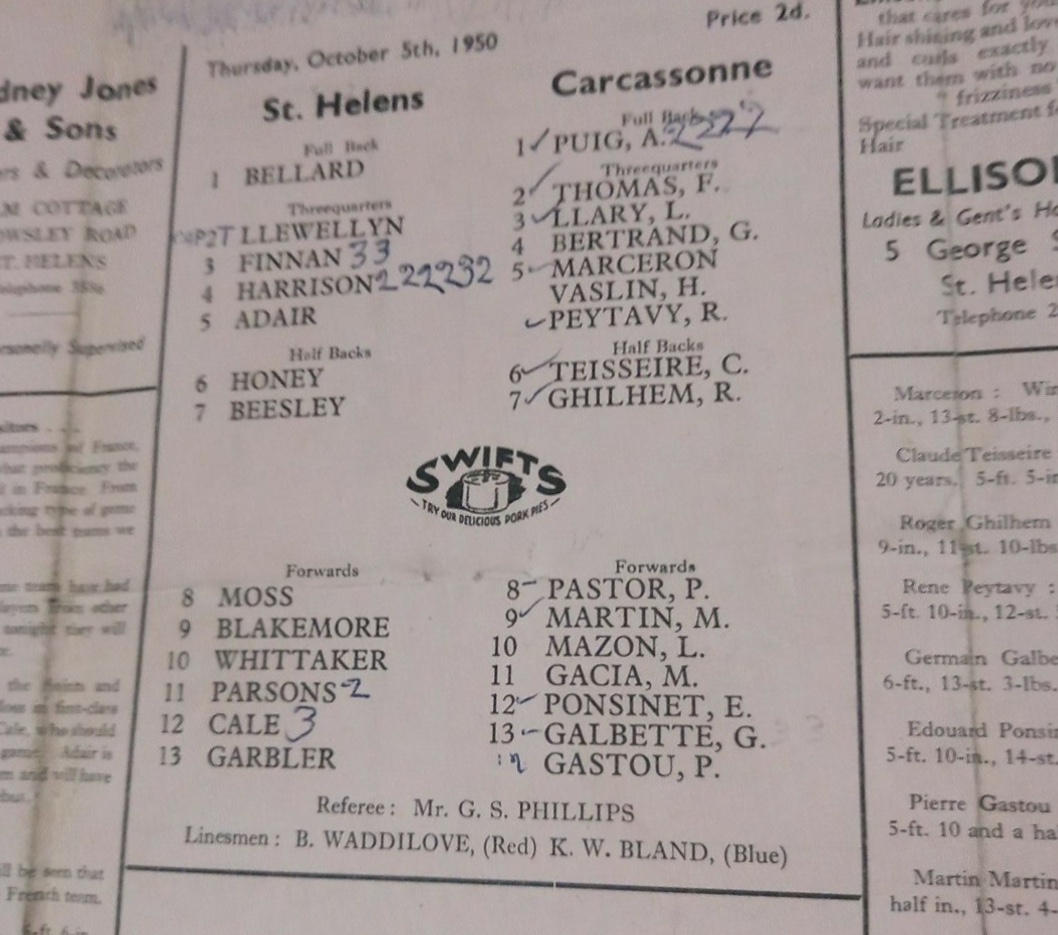 Price 2d.
Thursday, October 5th, 1950
St. Helens
Full Back
1 BELLARD
Threequarters
LLEWELLYN
3 FINNAN 33
4 HARRISON 222232
5 ADAIR
Half Backs
6 HONEY
7 BEESLEY
Carcassonne
Full Back
1 ✓ PUIG, A. 2222
Threequarters
2 ✓ THOMAS, F.
3 ✓ LLARY, L.
4 BERTRAND, G.
5 MARCERON
VASLIN, H.
✓ PEYTAVY, R.
Half Backs
6 ✓ TEISSEIRE, C.
7 ✓ GHILHEM, R.
SWIFTS
TRY OUR DELICIOUS PORK PIES
Forwards
8 MOSS
9 BLAKEMORE
10 WHITTAKER
11 PARSONS 2
12 CALE 3
13 GARBLER
Forwards
8 PASTOR, P.
9 ✓ MARTIN, M.
10 MAZON, L.
11 GACIA, M.
12 ✓ PONSINET, E.
13 GALBETTE, G.
GASTOU, P.
Referee : Mr. G. S. PHILLIPS
Linesmen : B. WADDILOVE, (Red) K. W. BLAND, (Blue)
Jones
& Sons
& Decorators
COTTAGE
ROAD
HELENS
Supervised
of France.
the
in France. From
of game
the best teams we
team have had
other
tonight they will
the and
in first-class
Cale, who should
game. Adair is
and will have
be seen that
French team.
that cares for
Hair shining and
and curls exactly
want them with no
frizziness
Special Treatment
Hair
Ladies & Gent's
5 George
St.
Telephone
Marceron :
2-in., 13-st. 8-lbs.,
Claude Teisseire
20 years. 5-ft.
Roger Ghilhem
9-in., 11-st.
Rene Peytavy :
5-ft. 10-in., 12-st.
German
6-ft., 13-st.
Edouard
5-ft. 10-in., 14-st.
Pierre Gastou
5-ft. 10 and a
Martin Martin
half in., 13-st.